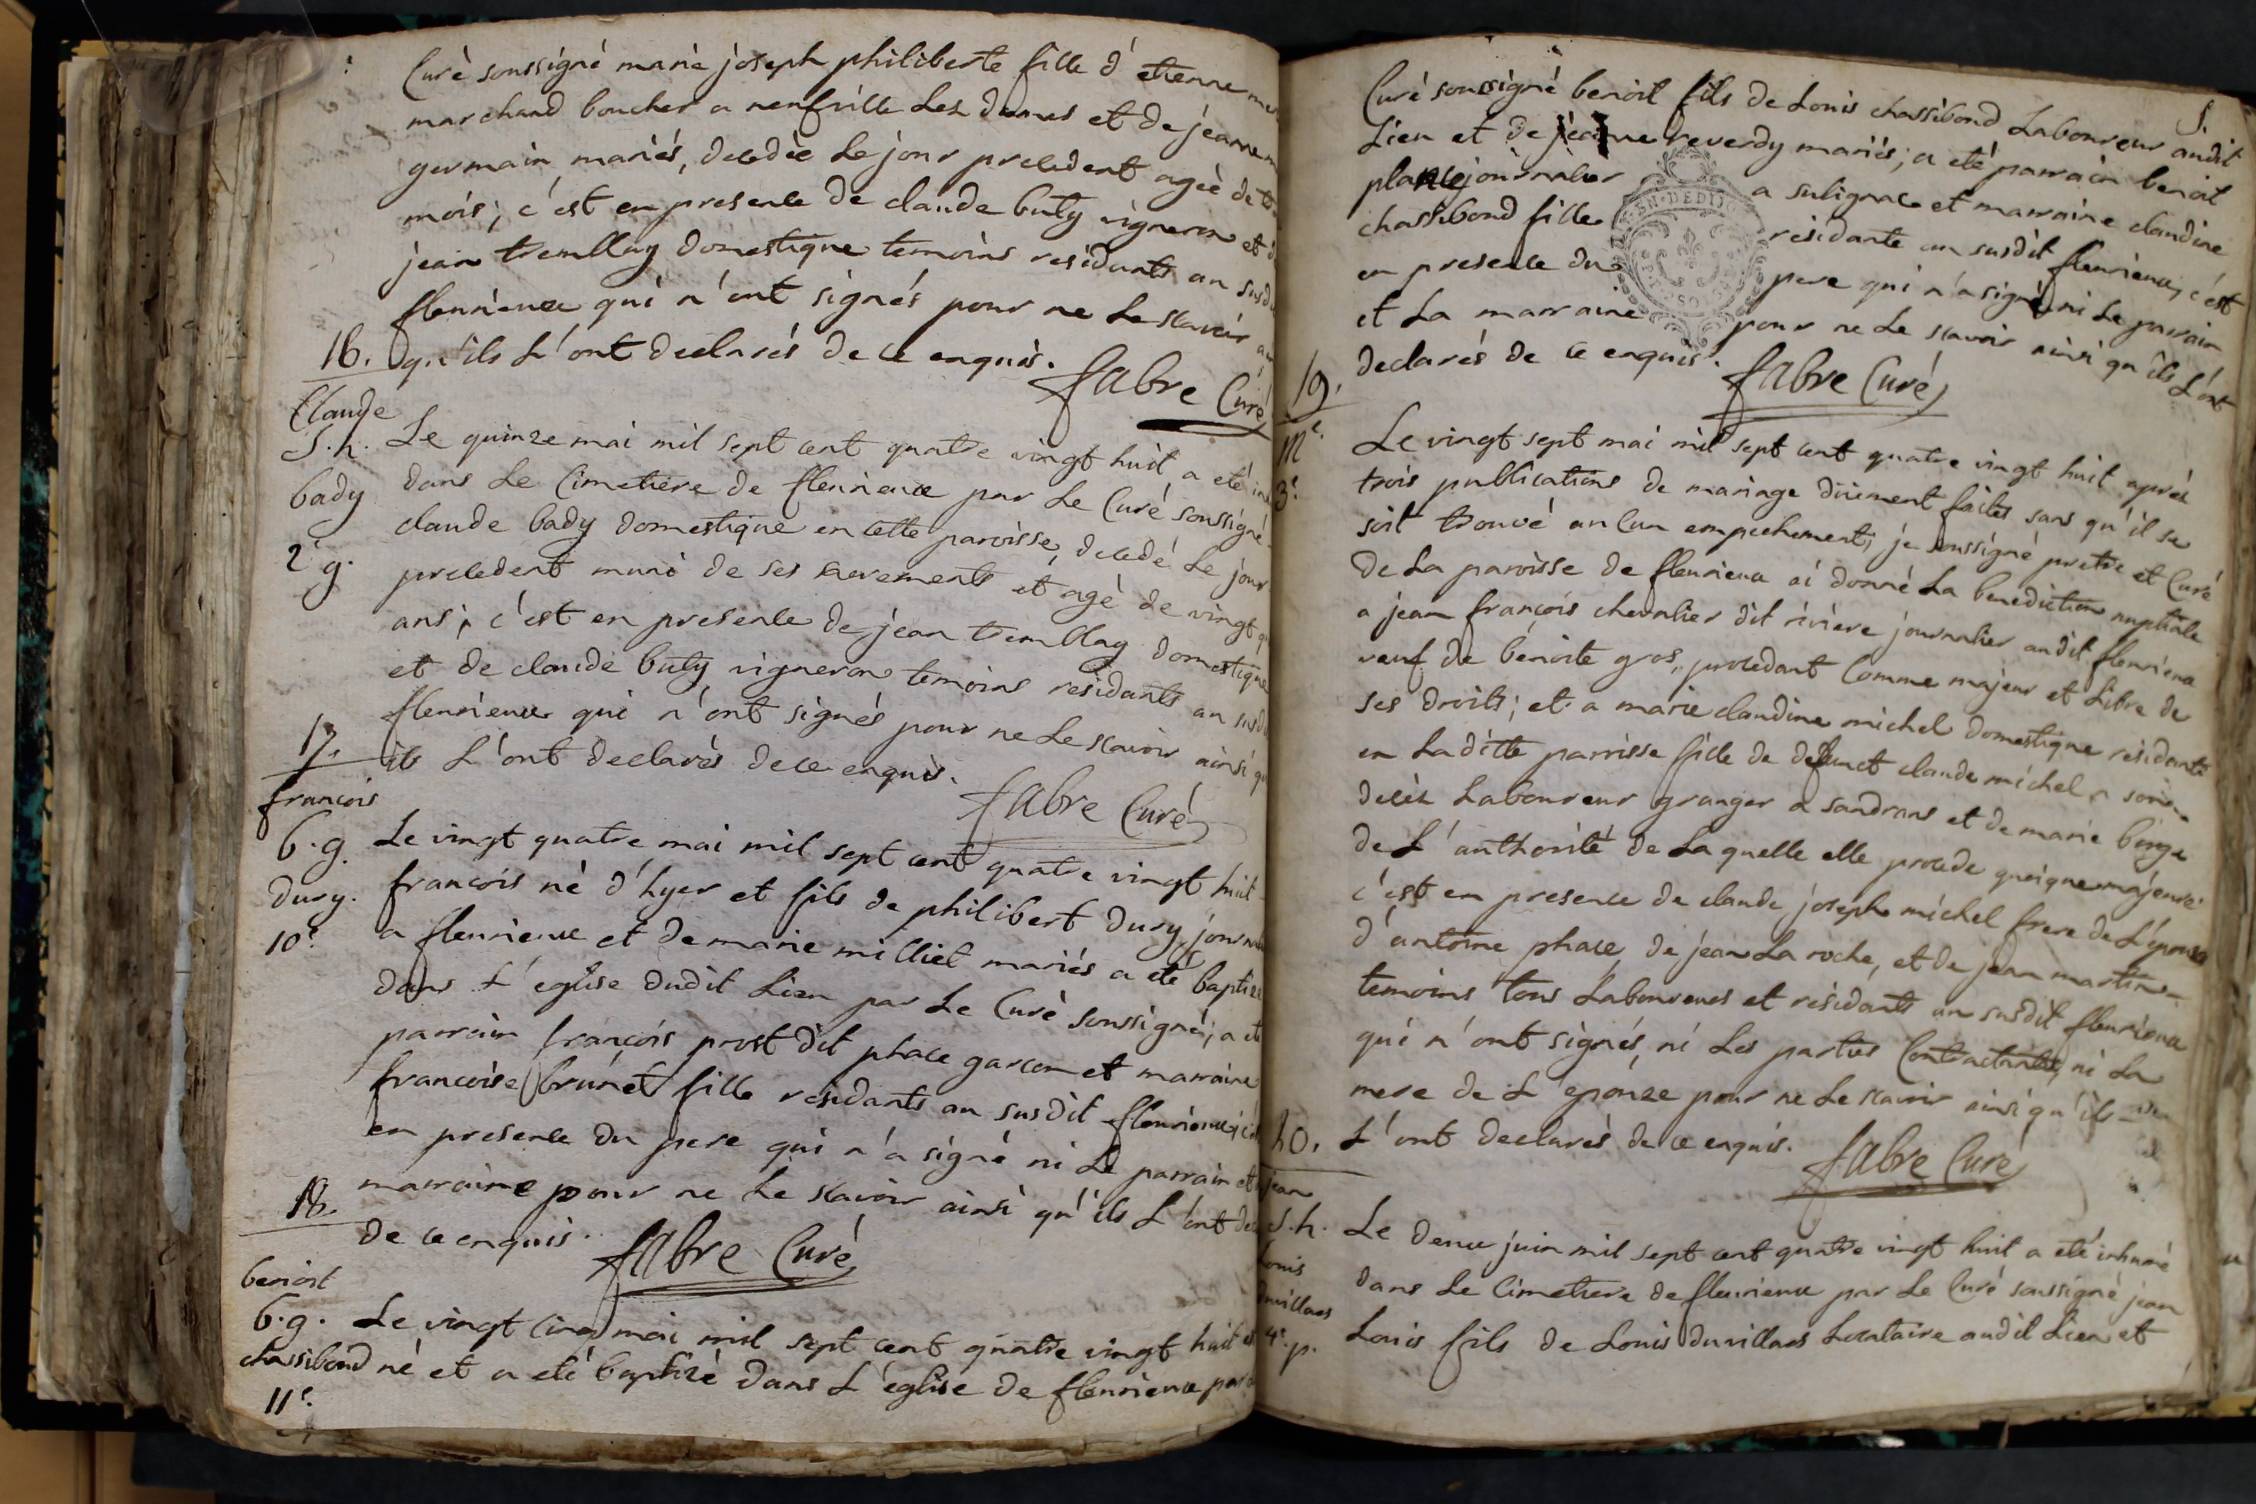 Curè soussigné marie joseph philiberte fille d'etienne
marchand boucher a neufville Les dames et de jeanne
germain mariés, decedèe Le jour precedent ageè de
mois; c'est en presence de claude buty vigneron et
jean tremblay domestique temoins residants au susd
fleurieux qui n'ont signés pour ne Le scavoir
16. qu'ils L'ont declarés de ce enquis. fabre Curé
Claude
S.h. Le quinze mai mil sept cent quatre vingt huit a eté
bady dans Le Cimetiere de fleurieux par Le Curé soussigné
2e g. claude bady domestique en cette paroisse, decedé Le jour
precedent muni de ses sacrements et agè de vingt
ans; c'est en presence de jean tremblay domestique
et de claude buty vigneron temoins residants au susd
fleurieux qui n'ont signés pour ne Le scavoir ainsi qu
17. ils L'ont declarès de ce enquis. fabre Curé
francois
b.g. Le vingt quatre mai mil sept cent quatre vingt huit
dury. francois nè d'hyer et fils de philibert dury journ
10e. a fleurieux et de marie milliet mariés a eté baptizé
dans L'eglise dudit Lieu par Le Curè soussigné; a eté
parrain françois prost dit place garcon et marraine
francoise brunet fille residants au susdit fleurieux;
en presence du pere qui n'a signé ni Le parrain et
marraine pour ne Le scavoir ainsi qu'ils L'ont de
18. de ce enquis. fabre Curé
benoit
b.g. Le vingt cinq mai mil sept cent quatre vingt huit
chassibond né et a eté baptizé dans L'eglise de fleurieux par
11e.
5.
Curé soussigné benoit fils de Louis chassibond Laboureur audit
Lieu et de jeanne reverdy mariés; a eté parrain benoit
place journalier a sulignac et marraine claudine
chassibond fille residante au susdit fleurieux; c'est
en presence du pere qui n'a signé ni Le parrain
et La marraine pour ne Le scavoir ainsi qu'ils L'ont
declarés de ce enquis. fabre Curé
19.
Me. Le vingt sept mai mil sept cent quatre vingt huit après
3e. trois publications de mariage düement faites sans qu'il se
soit trouvé aucun empechement, je soussigné pretre et Curé
de La paroisse de fleurieux ai donné La benediction nuptiale
a jean françois chevalier dit riviere journalier audit fleurieux
veuf de benoite gros, procedant Comme majeur et Libre de
ses droits; et a marie claudine michel domestique residante
en Laditte parrisse fille de defunct claude michel a son
decès Laboureur granger a sandrans et de marie
de L'authorité de Laquelle elle procede quoique majeure
c'est en presence de claude joseph michel frere de L'epouse
d'antoine place, de jean La roche, et de jean martin
temoins tous Laboureurs et residants au susdit fleurieux
qui n'ont signés, ni Les parties Contractantes, ni La
mere de L'epouze pour ne Le scavoir ainsi qu'ils
20. L'ont declarés de ce enquis. fabre Curé
jean
S.h. Le deux juin mil sept cent quatre vingt huit a eté inhumé
Louis dans Le Cimetiere de fleurieux par Le Curé soussigné jean
duvillars Louis fils de Louis duvillars Locataire audit Lieu et
4e. p.